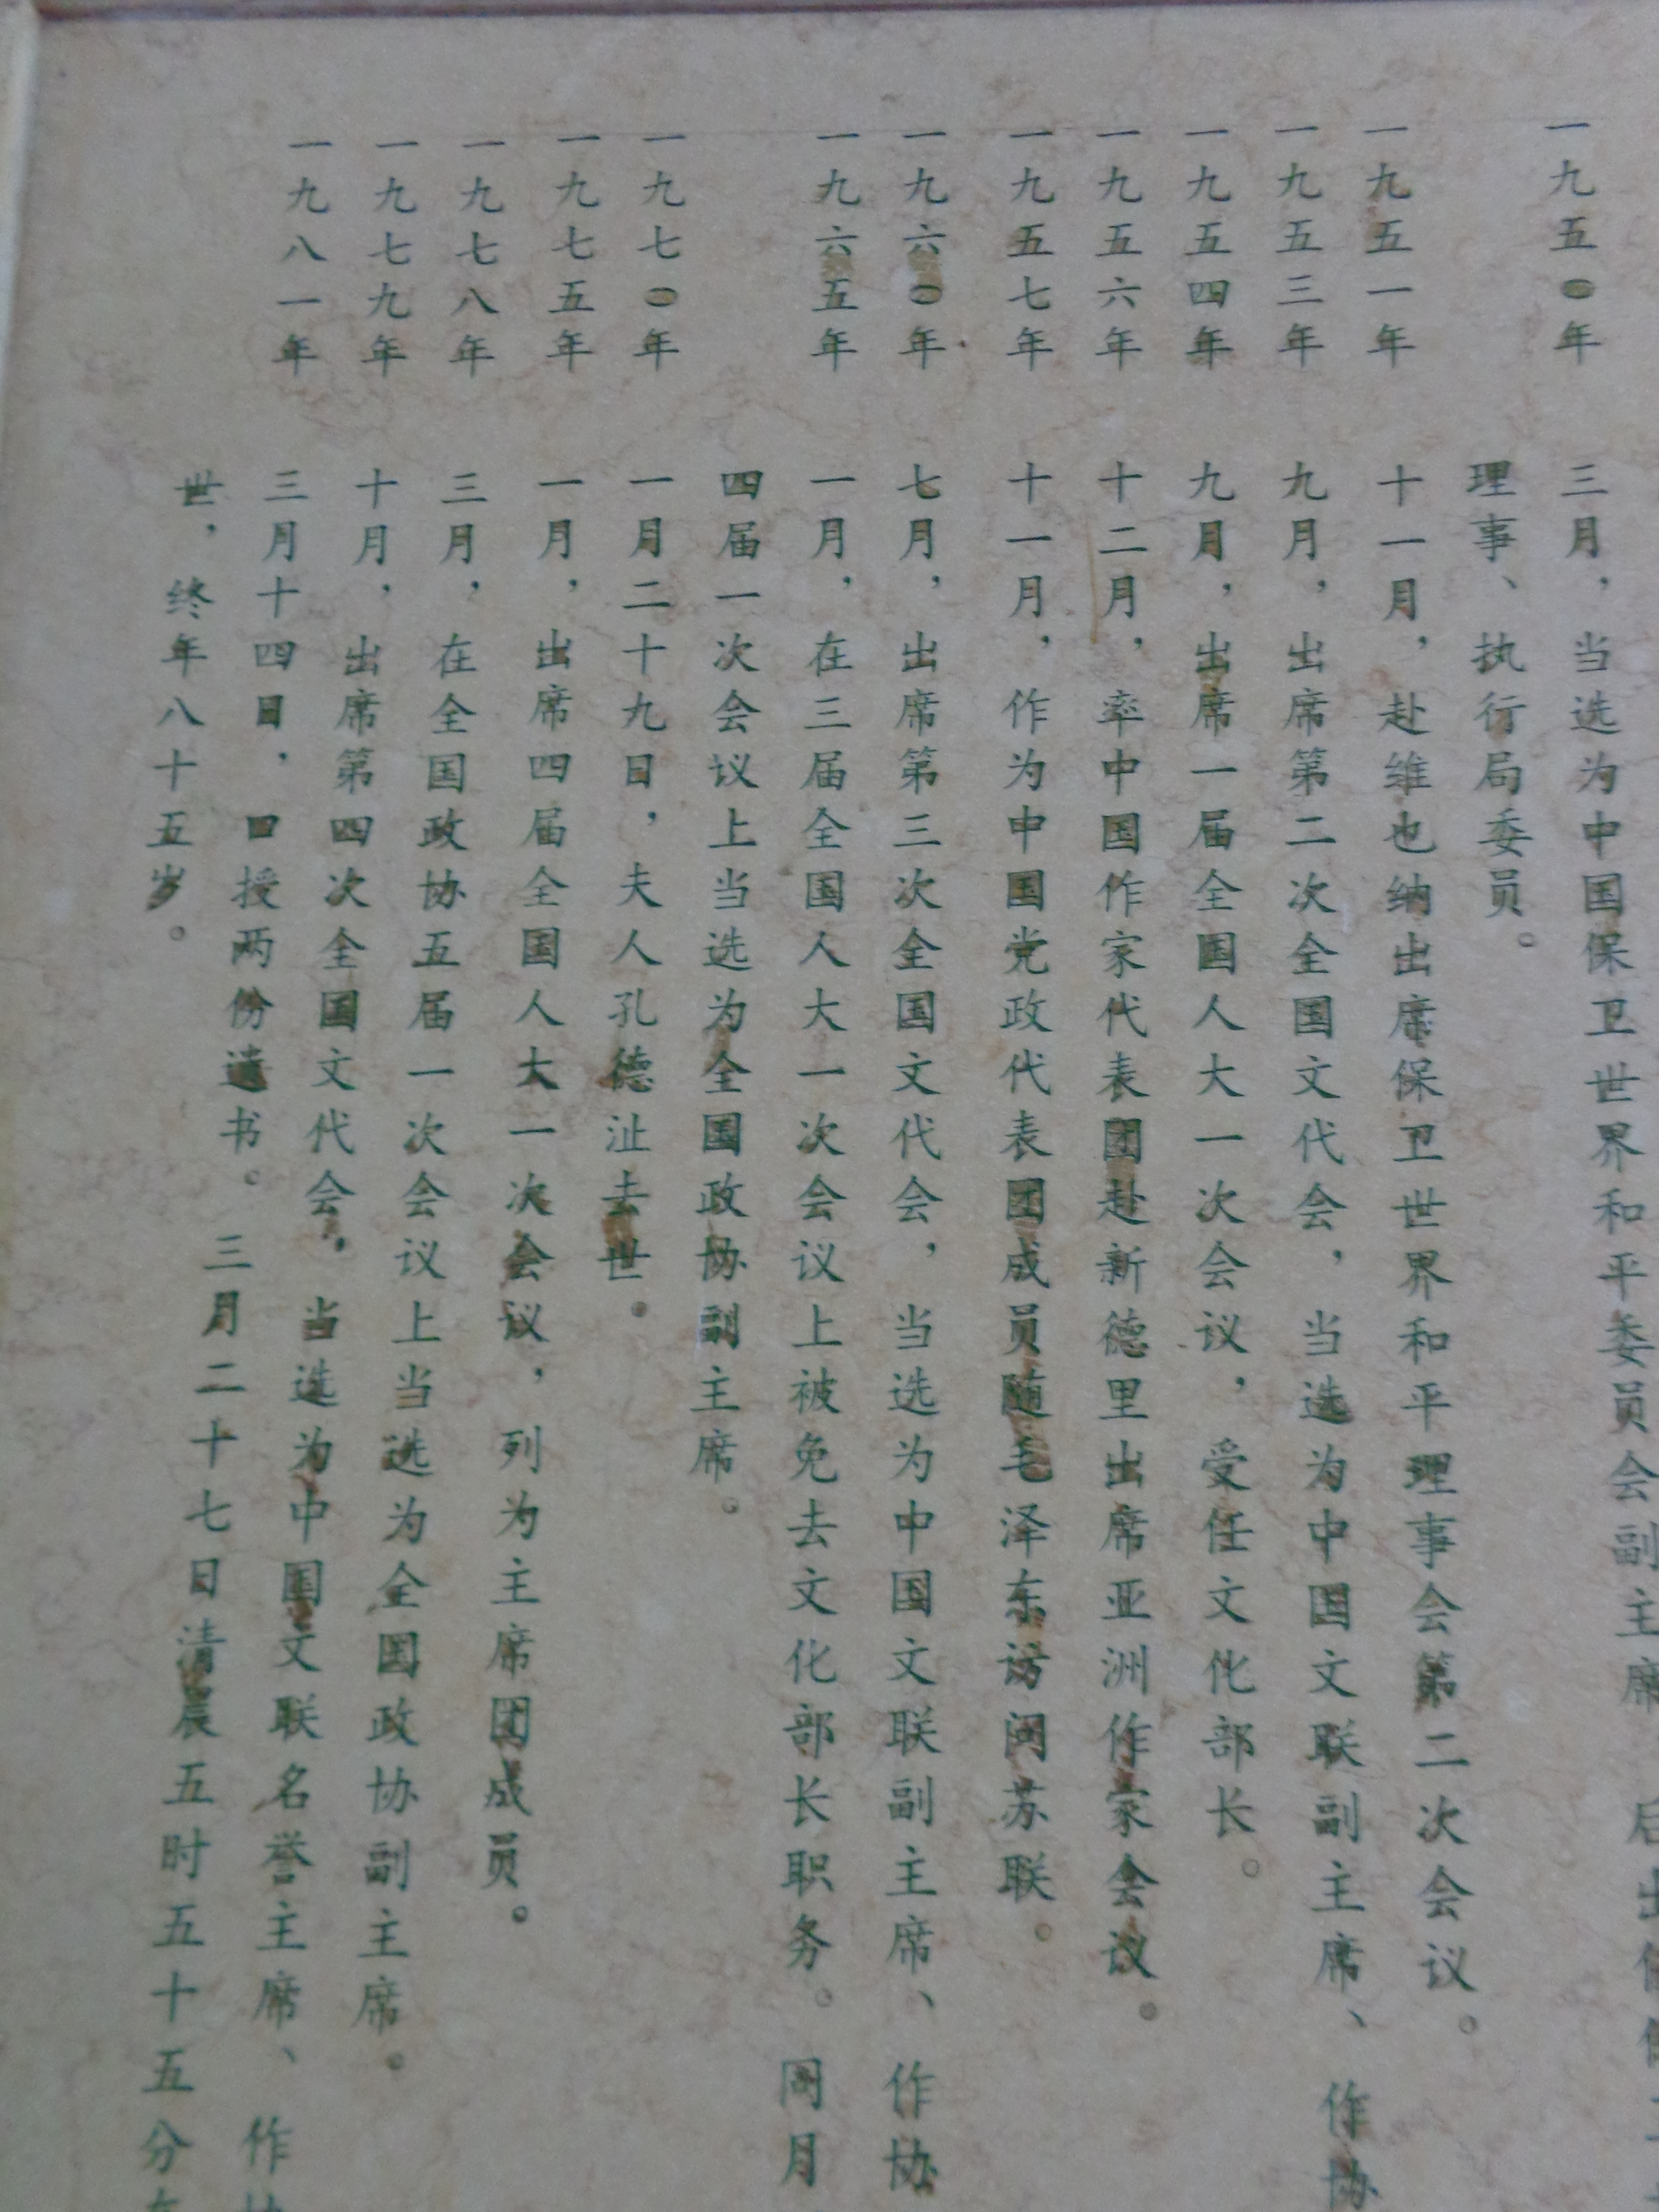 一九五〇年 三月，当选为中国保卫世界和平委员会副主席 后出
理事、执行局委员。
一九五一年 十一月，赴维也纳出席保卫世界和平理事会第二次会议。
一九五三年 九月，出席第二次全国文代会，当选为中国文联副主席、作协
一九五四年 九月，出席一届全国人大一次会议，受任文化部长。
一九五六年 十二月，率中国作家代表团赴新德里出席亚洲作家会议。
一九五七年 十一月，作为中国党政代表团成员随毛泽东访问苏联。
一九六〇年 七月，出席第三次全国文代会，当选为中国文联副主席、作协
一九六五年 一月，在三届全国人大一次会议上被免去文化部长职务。同月
四届一次会议上当选为全国政协副主席。
一九七〇年 一月二十九日，夫人孔德沚去世。
一九七五年 一月，出席四届全国人大一次会议，列为主席团成员。
一九七八年 三月，在全国政协五届一次会议上当选为全国政协副主席。
一九七九年 十月，出席第四次全国文代会，当选为中国文联名誉主席、作
一九八一年 三月十四日，口授两份遗书。三月二十七日清晨五时五十五分
世，终年八十五岁。